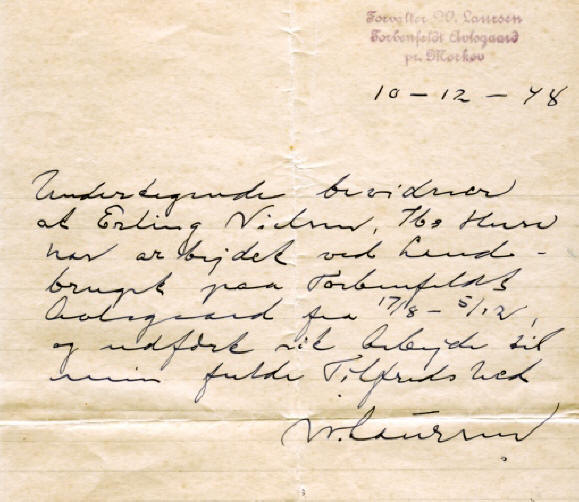 Forvalter W. Laursen
Torbenfeldt Avlsgaard
pr. Mørkøv
10 – 12 – 48
Undertegnede bevidner
at Erling Nielsen,
har arbejdet ved Land-
bruget paa Torbenfeldt
Avlsgaard fra 17/8 – 5/12,
og udført sit Arbejde til
min fulde Tilfredshed
W. Laursen